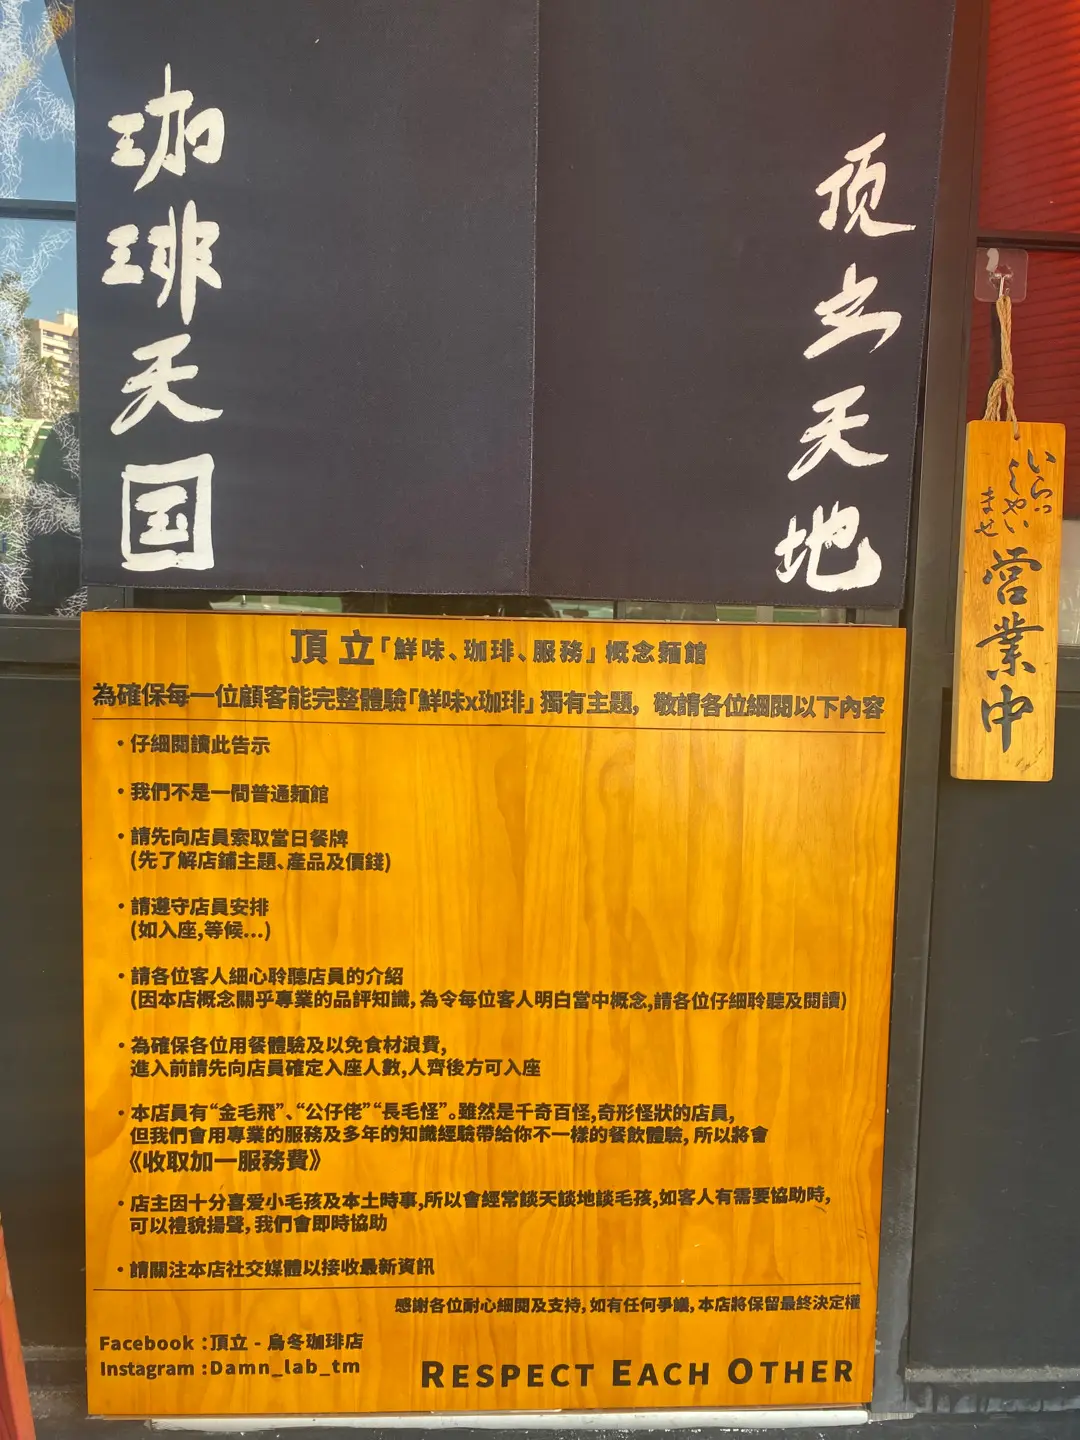 顶立天地
珈琲天国
いらっ
しゃい
ませ
営業中
頂立「鮮味、珈琲、服務」概念麵館
為確保每一位顧客能完整體驗「鮮味x珈琲」獨有主題, 敬請各位細閱以下內容
・仔細閱讀此告示
・我們不是一間普通麵館
・請先向店員索取當日餐牌
(先了解店鋪主題、產品及價錢)
・請遵守店員安排
(如入座,等候...)
・請各位客人細心聆聽店員的介紹
(因本店概念關乎專業的品評知識, 為令每位客人明白當中概念,請各位仔細聆聽及閱讀)
・為確保各位用餐體驗及以免食材浪費,
進入前請先向店員確定入座人數,人齊後方可入座
・本店員有“金毛飛”、“公仔佬”“長毛怪”。雖然是千奇百怪,奇形怪狀的店員,
但我們會用專業的服務及多年的知識經驗帶給你不一樣的餐飲體驗, 所以將會
《收取加一服務費》
・店主因十分喜爱小毛孩及本土時事,所以會經常談天談地談毛孩,如客人有需要協助時,
可以禮貌揚聲, 我們會即時協助
・請關注本店社交媒體以接收最新資訊
感謝各位耐心細閱及支持, 如有任何爭議, 本店將保留最終決定權
Facebook :頂立 - 烏冬珈琲店
Instagram :Damn_lab_tm
RESPECT EACH OTHER